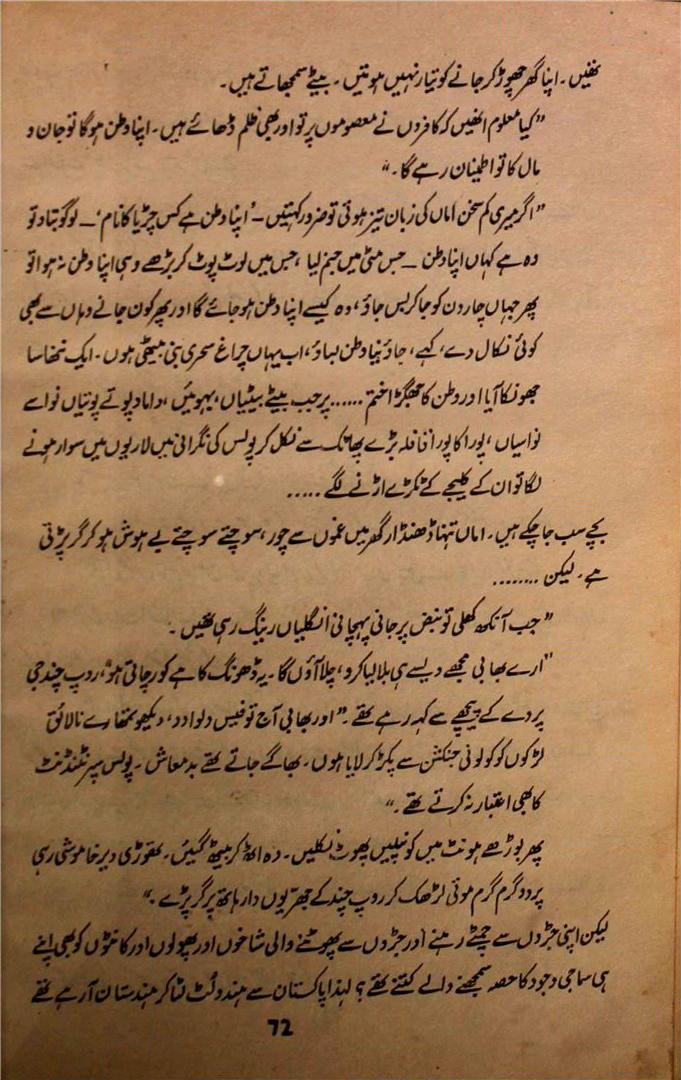 تھیں۔ اپنا گھر چھوڑ کر جانے کو تیار نہیں ہوتیں۔ بیٹے سمجھاتے ہیں۔
”کیا معلوم انھیں کہ کافروں نے معصوموں پر تو اور بھی ظلم ڈھائے ہیں۔ اپنا وطن ہوگا تو جان و
مال کا تو اطمینان رہے گا۔“
”اگر میری کم سخن اماں کی زبان تیز ہوتی تو ضرور کہتیں – ’اپنا وطن ہے کس چڑیا کا نام‘ – لوگو بتاؤ تو
وہ ہے کہاں اپنا وطن – جس مٹی میں جنم لیا، جس میں لوٹ پوٹ کر بڑھے وہی اپنا وطن نہ ہوا تو
پھر جہاں چار دن کو جا کر بس جاؤ، وہ کیسے اپنا وطن ہو جائے گا اور پھر کون جانے وہاں سے بھی
کوئی نکال دے، کہے، جاؤ نیا وطن بساؤ، اب یہاں چراغ سحری بنی بیٹھی ہوں۔ ایک ننھا سا
جھونکا آیا اور وطن کا جھگڑا ختم ...... پر جب بیٹے بیٹیاں، بہوئیں، داماد پوتے پوتیاں نواسے
نواسیاں، پورا کا پورا قافلہ بڑے پھاٹک سے نکل کر پولس کی نگرانی میں لاریوں میں سوار ہونے
لگا تو ان کے کلیجے کے ٹکڑے اڑنے لگے .....
بچے سب جا چکے ہیں۔ اماں تنہا ڈھنڈار گھر میں غموں سے چور، سوچتے سوچتے بے ہوش ہو کر گر پڑتی
ہے۔ لیکن ........
”جب آنکھ کھلی تو نبض پر جانی پہچانی انگلیاں رینگ رہی تھیں۔
”ارے بھابی مجھے ویسے ہی بلا لیا کرو، چلا آؤں گا۔ یہ ڈھونگ کا ہے کو رچاتی ہو“، روپ چند جی
پردے کے پیچھے سے کہہ رہے تھے۔ ”اور بھابی آج تو فیس دلوا دو، دیکھو تمھارے نالائق
لڑکوں کو لونی جنکشن سے پکڑ کر لایا ہوں۔ بھاگے جاتے تھے بدمعاش۔ پولس سپرنٹنڈنٹ
کا بھی اعتبار نہ کرتے تھے۔“
پھر بوڑھے ہونٹ میں کونپلیں پھوٹ نکلیں۔ وہ اٹھ کر بیٹھ گئیں۔ تھوڑی دیر خاموشی رہی
پر دو گرم گرم موتی لڑھک کر روپ چند کے جھریوں دار ہاتھ پر گر پڑے۔“
لیکن اپنی جڑوں سے چمٹے رہنے اور جڑوں سے پھوٹنے والی شاخوں اور پھولوں اور کانٹوں کو بھی اپنے
ہی سماجی وجود کا حصہ سمجھنے والے کتنے تھے؟ لہذا پاکستان سے ہندو لٹ لٹا کر ہندستان آ رہے تھے
72